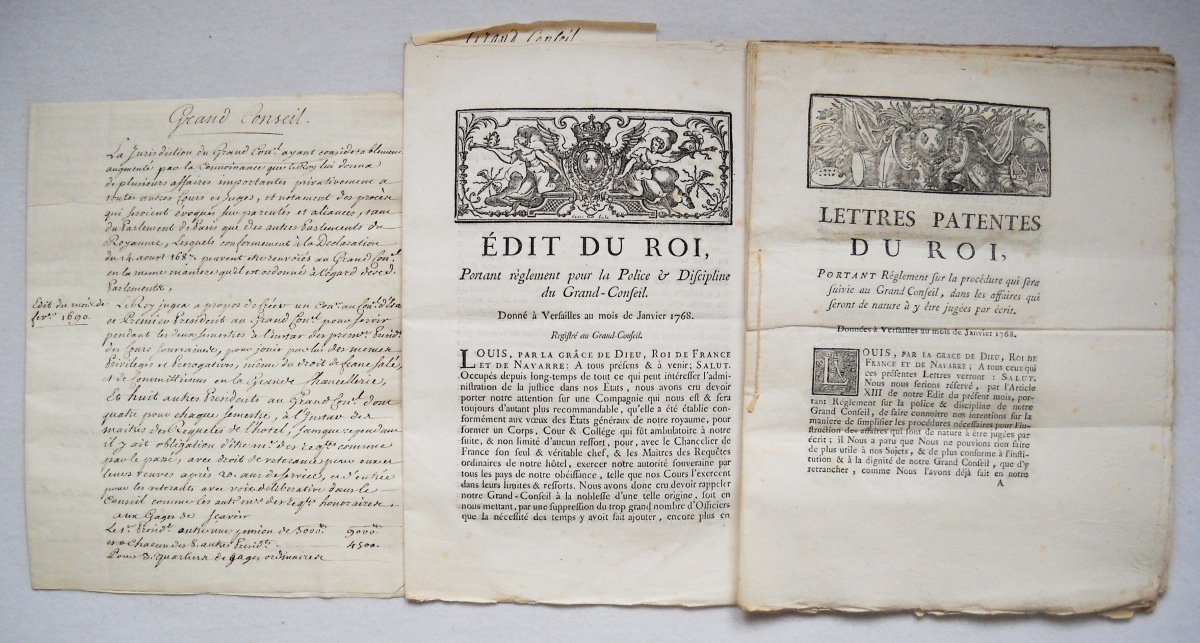 Grand Conseil.
La Jurisdiction du Grand Con.el ayant considerablement
augmenté par la Connoissance que le Roy lui donna
de plusieurs affaires importantes privativement a
toutes autres Cours et Juges, et notament des procès
qui seroient évoqués sur parentés et aliances, tant
du Parlement de Paris que des autres Parlements du
Royaume, Lesquels conformement à la Declaration
du 14. aoust 1687. peuvent etre renvoiés au Grand Con.el
en la meme maniere qu'il est ordonné à l'égard desd.
Parlements,
Edit du mois de
fev.er 1690.
Le Roy jugea a propos de Créer un Con.er au Con.el d'État
et Premier President au Grand Con.el pour servir
pendant les deux semestres à l'instar des prem.rs Presid.ts
des Cours souveraines, pour jouir par lui des memes
Privileges et Prerogatives, meme du droit de franc salé,
et de Committimus en la Grande Chancellerie,
Et huit autres Presidents au Grand Con.el dont
quatre pour chaque semestre, à l'instar des
maitres des Requetes de l'hotel, sans que cependant
il y ait obligation d'etre m.e des Req.tes comme
par le passé, avec droit de veterance pour eux et
leurs veuves après 20. ans de service, et d'entrée
pour les veterants avec voix deliberative dans le
Conseil comme les aut. m.es des Req.tes honoraires.
aux Gages de Scavoir
Le 1.er Presid.t outre une pension de 3000.tt 9000.tt
et a Chacun des 8. autres Presid.ts 4500.
Pour 3. quartiers de gages ordinaires
Grand Conseil
ÉDIT DU ROI,
Portant règlement pour la Police & Discipline
du Grand-Conseil.
Donné à Versailles au mois de Janvier 1768.
Registré au Grand-Conseil.
LOUIS, PAR LA GRÂCE DE DIEU, ROI DE FRANCE
ET DE NAVARRE: A tous présens & à venir; SALUT.
Occupés depuis long-temps de tout ce qui peut intéresser l'admi-
nistration de la justice dans nos États, nous avons cru devoir
porter notre attention sur une Compagnie qui nous est & sera
toujours d'autant plus recommandable, qu'elle a été établie con-
formément aux vœux des États généraux de notre royaume, pour
former un Corps, Cour & Collége qui fût ambulatoire à notre
suite, & non limité d'aucun ressort, pour, avec le Chancelier de
France son seul & véritable chef, & les Maitres des Requêtes
ordinaires de notre hôtel, exercer notre autorité souveraine par
tous les pays de notre obéissance, telle que nos Cours l'exercent
dans leurs limites & ressorts. Nous avons donc cru devoir rappeler
notre Grand-Conseil à la noblesse d'une telle origine, soit en
nous mettant, par une suppression du trop grand nombre d'Officiers
que la nécessité des temps y avoit fait ajouter, encore plus en
LETTRES PATENTES
DU ROI,
PORTANT Réglement sur la procédure qui sera
suivie au Grand Conseil, dans les affaires qui
seront de nature à y être jugées par écrit.
Données à Versailles au mois de Janvier 1768.
LOUIS, PAR LA GRACE DE DIEU, ROI DE
FRANCE ET DE NAVARRE; A tous ceux qui
ces présentes Lettres verront: SALUT.
Nous nous serions réservé, par l'Article
XIII de notre Edit du présent mois, por-
tant Réglement sur la police & discipline de notre
Grand Conseil, de faire connoître nos intentions sur la
maniere de simplifier les procédures nécessaires pour l'ins-
truction des affaires qui sont de nature à être jugées par
écrit; il Nous a paru que Nous ne pouvions rien faire
de plus utile à nos Sujets, & de plus conforme à l'insti-
tution & à la dignité de notre Grand Conseil, que d'y
retrancher, comme Nous l'avons déjà fait en notre
A